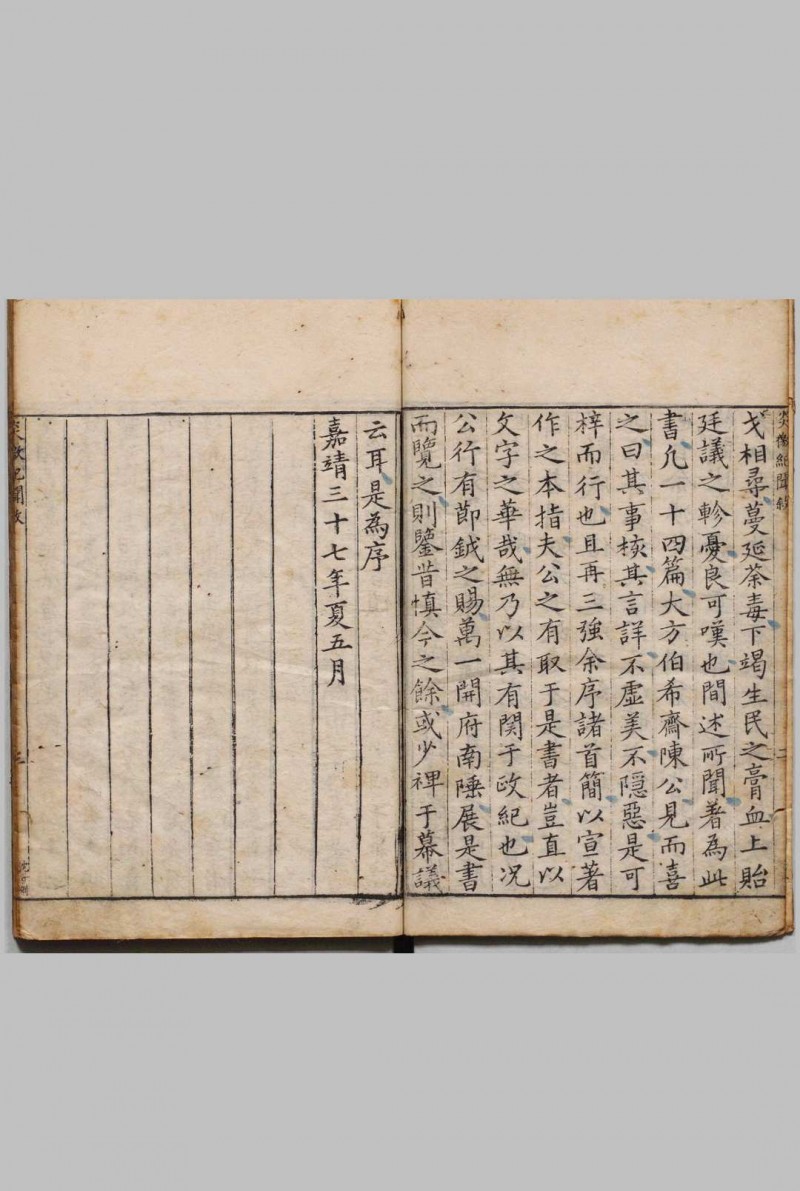 炎徼紀聞敘
二
戈相尋蔓延荼毒下竭生民之膏血上貽
廷議之軫憂良可嘆也間述所聞著為此
書凡一十四篇大方伯希齋陳公見而喜
之曰其事核其言詳不虛美不隱惡是可
梓而行也且再三強余序諸首簡以宣著
作之本指夫公之有取于是書者豈直以
文字之華哉無乃以其有関于政紀也况
公行有節鉞之賜萬一開府南陲展是書
而覽之則鑒昔慎今之餘或少裨于幕議
云耳是為序
嘉靖三十七年夏五月
炎徼紀聞敘